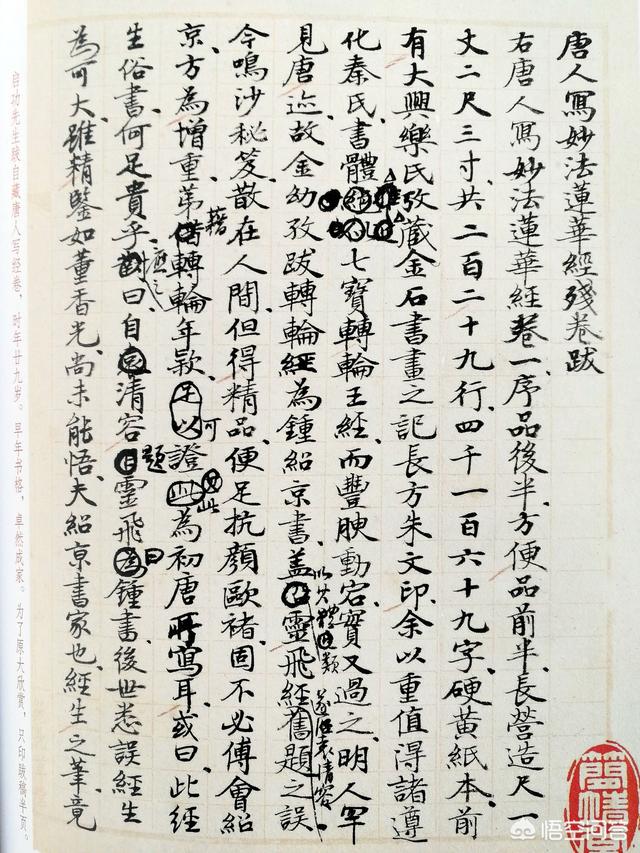 唐人寫妙法蓮華經殘卷跋
右唐人寫妙法蓮華經卷一序品後半方便品前半長營造尺一
丈二尺三寸共二百二十九行四千一百六十九字硬黃紙本前
有大興樂氏攷藏金石書畫之記長方朱文印余以重值得諸遵
化秦氏書體七寶轉輪王經而豐腴動宕實又過之明人罕
見唐迹故金幼孜跋轉輪經為鍾紹京書蓋靈飛經舊題之誤
遂沿袁清容
今鳴沙秘笈散在人間但得精品便足抗顏歐褚固不必傅會紹
京方為增重苐藉轉輪年款足以可證此為初唐所寫耳或曰此經
生俗書何足貴乎應之曰自清容題靈飛曰鍾書後世悉誤經生
為可大雖精鑒如董香光尚未能悟夫紹京書家也經生之筆竟
启功先生跋自藏唐人写经卷，时年廿九岁。早年书格，卓然成家。为了原大欣赏，只印跋稿半页。
悟空问答